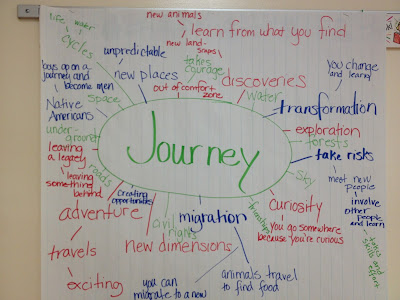 life
water
cycles
new animals
learn from what you find
unpredictable
new land-
scapes
takes
courage
boys go on a
journey and
become men
new places
out of comfort
zone
discoveries
you change
and learn
space
water
transformation
Native
Americans
exploration
under-
ground
forests
Journey
take risks
leaving
a legacy
roads
sky
meet new
people
leaving
something
behind
creating
opportunities
curiosity
involve
other
people
and learn
adventure
migration
you go somewhere
because you're curious
takes
skills and
effort
travels
new dimensions
exciting
you can
migrate to a new
animals travel
to find food